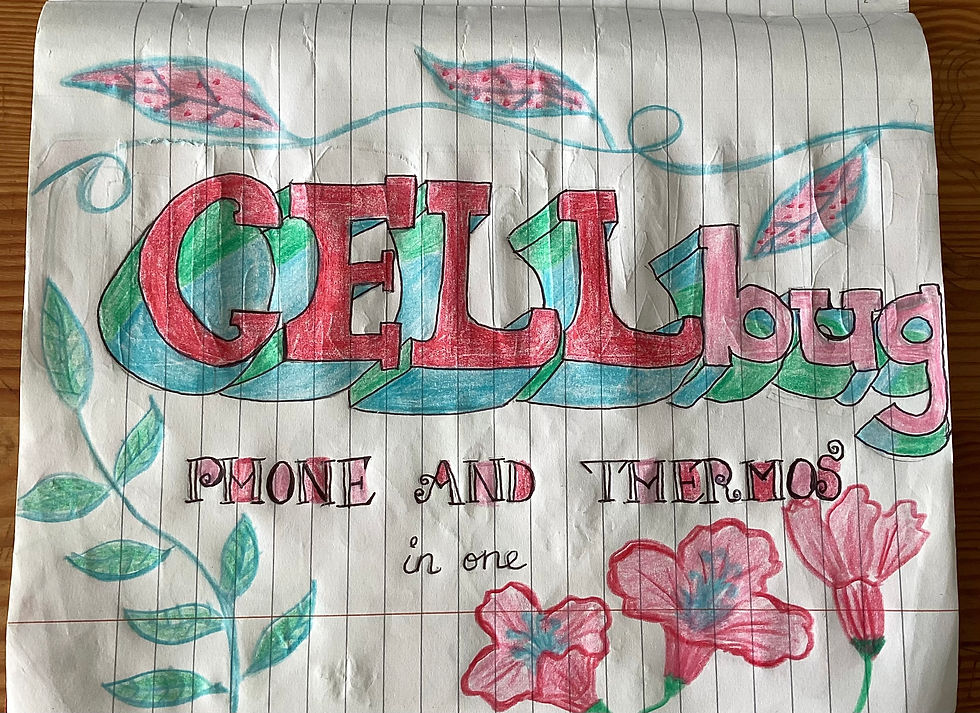 CELL bug
PHONE AND THERMOS
in one